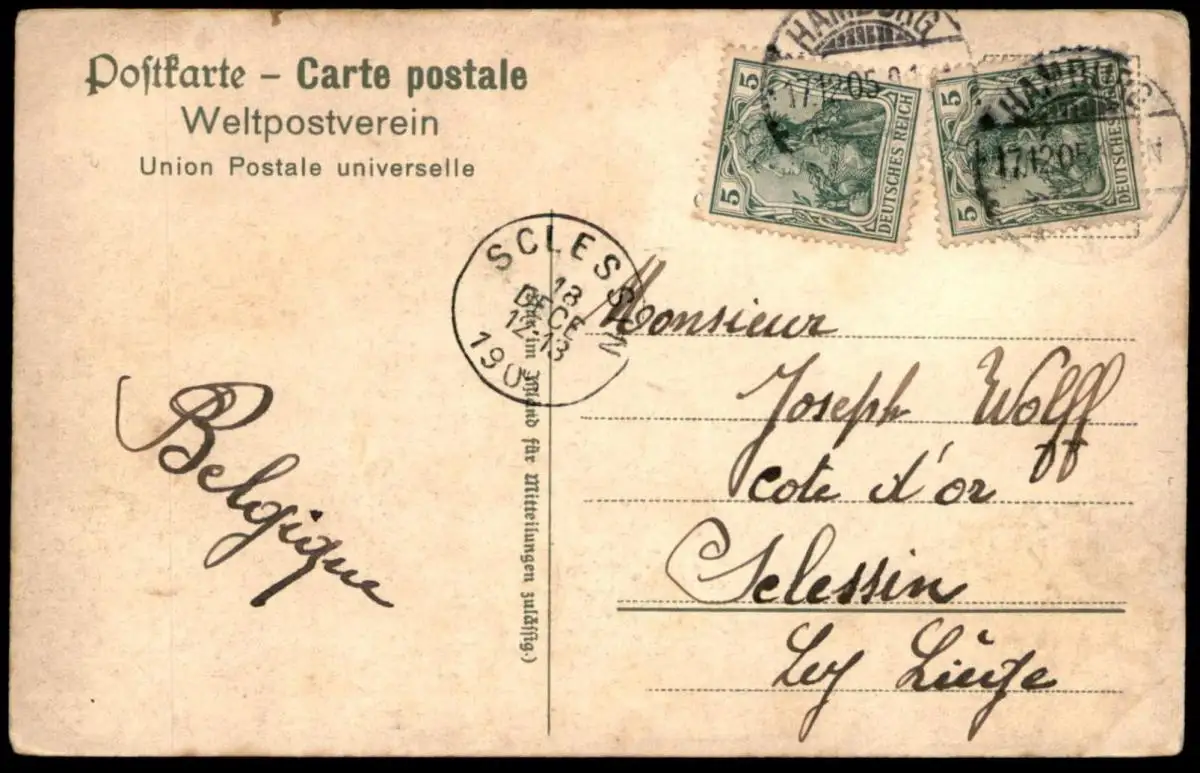 Postkarte – Carte postale
Weltpostverein
Union Postale universelle
HAMBURG
17.12.05.
5
5
DEUTSCHES REICH
HAMBURG
17.12.05
5
5
DEUTSCHES REICH
SCLESSIN
18
DECE
12-13
190
im Inland für Mitteilungen zulässig.)
Monsieur
Joseph Wolff
cote d'or
Sclessin
Lez Liége
Belgique